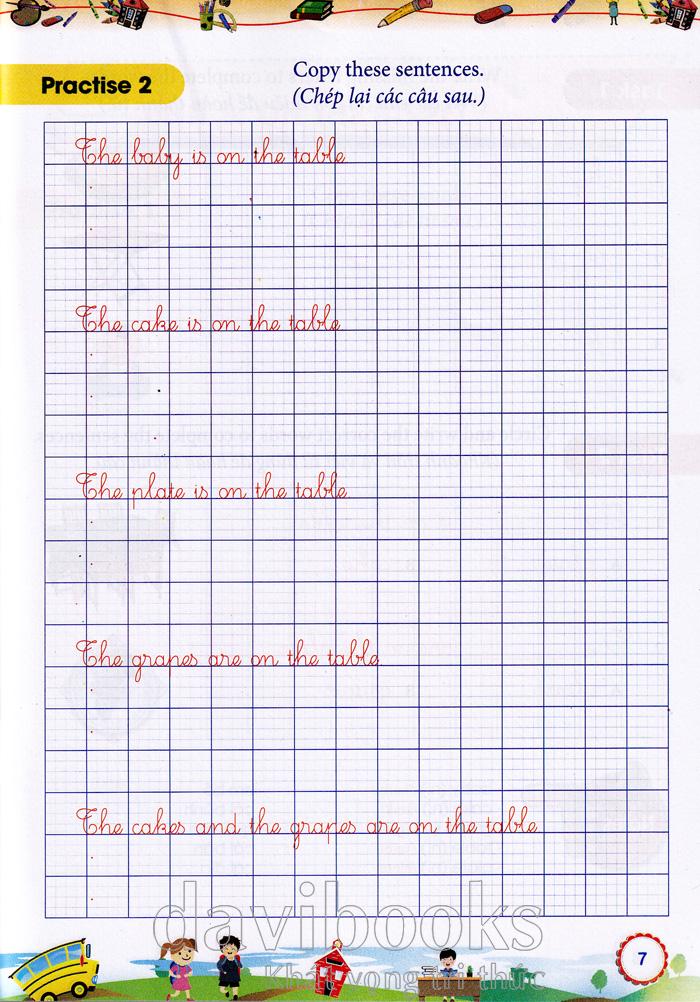 Practise 2
Copy these sentences.
(Chép lại các câu sau.)
The baby is on the table
The cake is on the table
The plate is on the table
The grapes are on the table
The cakes and the grapes are on the table
davibooks
Khát vọng tri thức
7